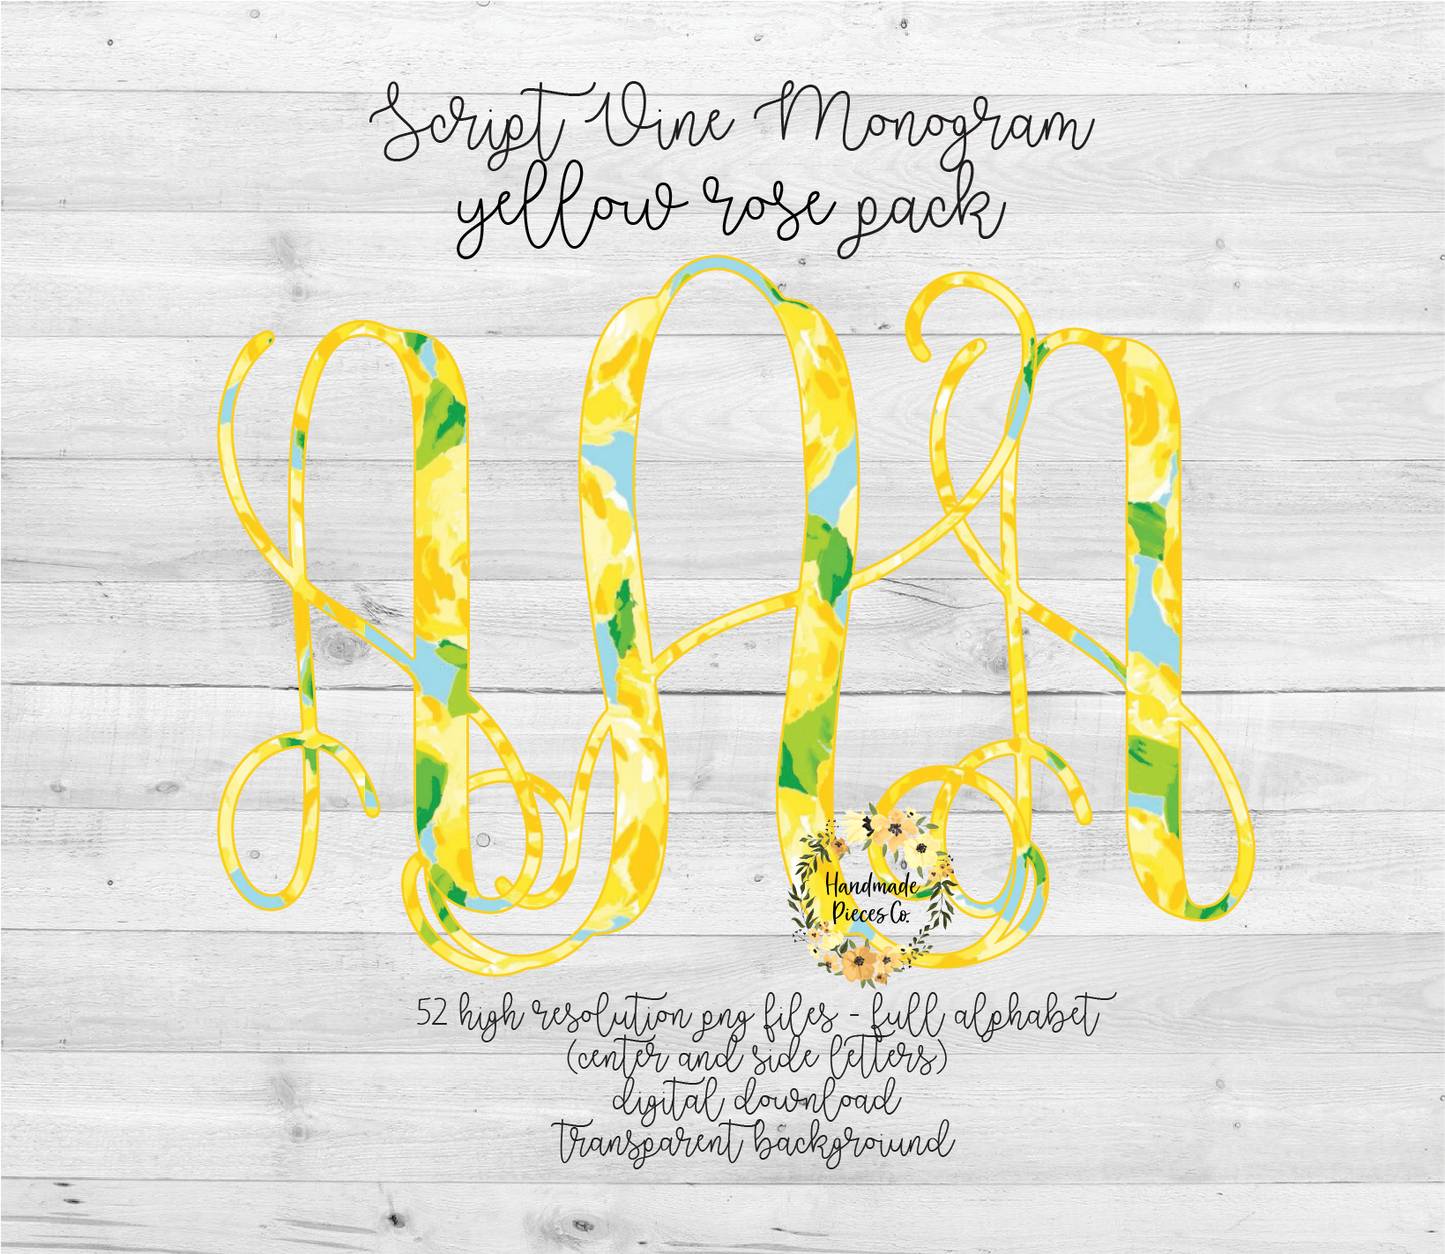 Script Vine Monogram
yellow rose pack
AAA
Handmade
Pieces Co.
52 high resolution png files - full alphabet
(center and side letters)
digital download
transparent backgroiund